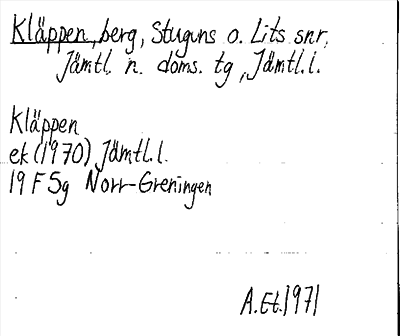 Kläppen, berg, Stuguns o. Lits snr,
Jämtl. n. doms. tg, Jämtl.l.
Kläppen
ek (1970) Jämtl.l.
19 F 5g Norr-Greningen
A.Et.1971